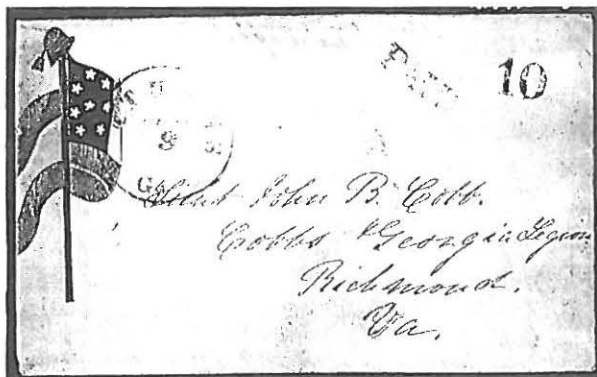 PAID 10
9
GA
Lieut John B. Cobb.
Cobbs Georgia Legion
Richmond.
Va.